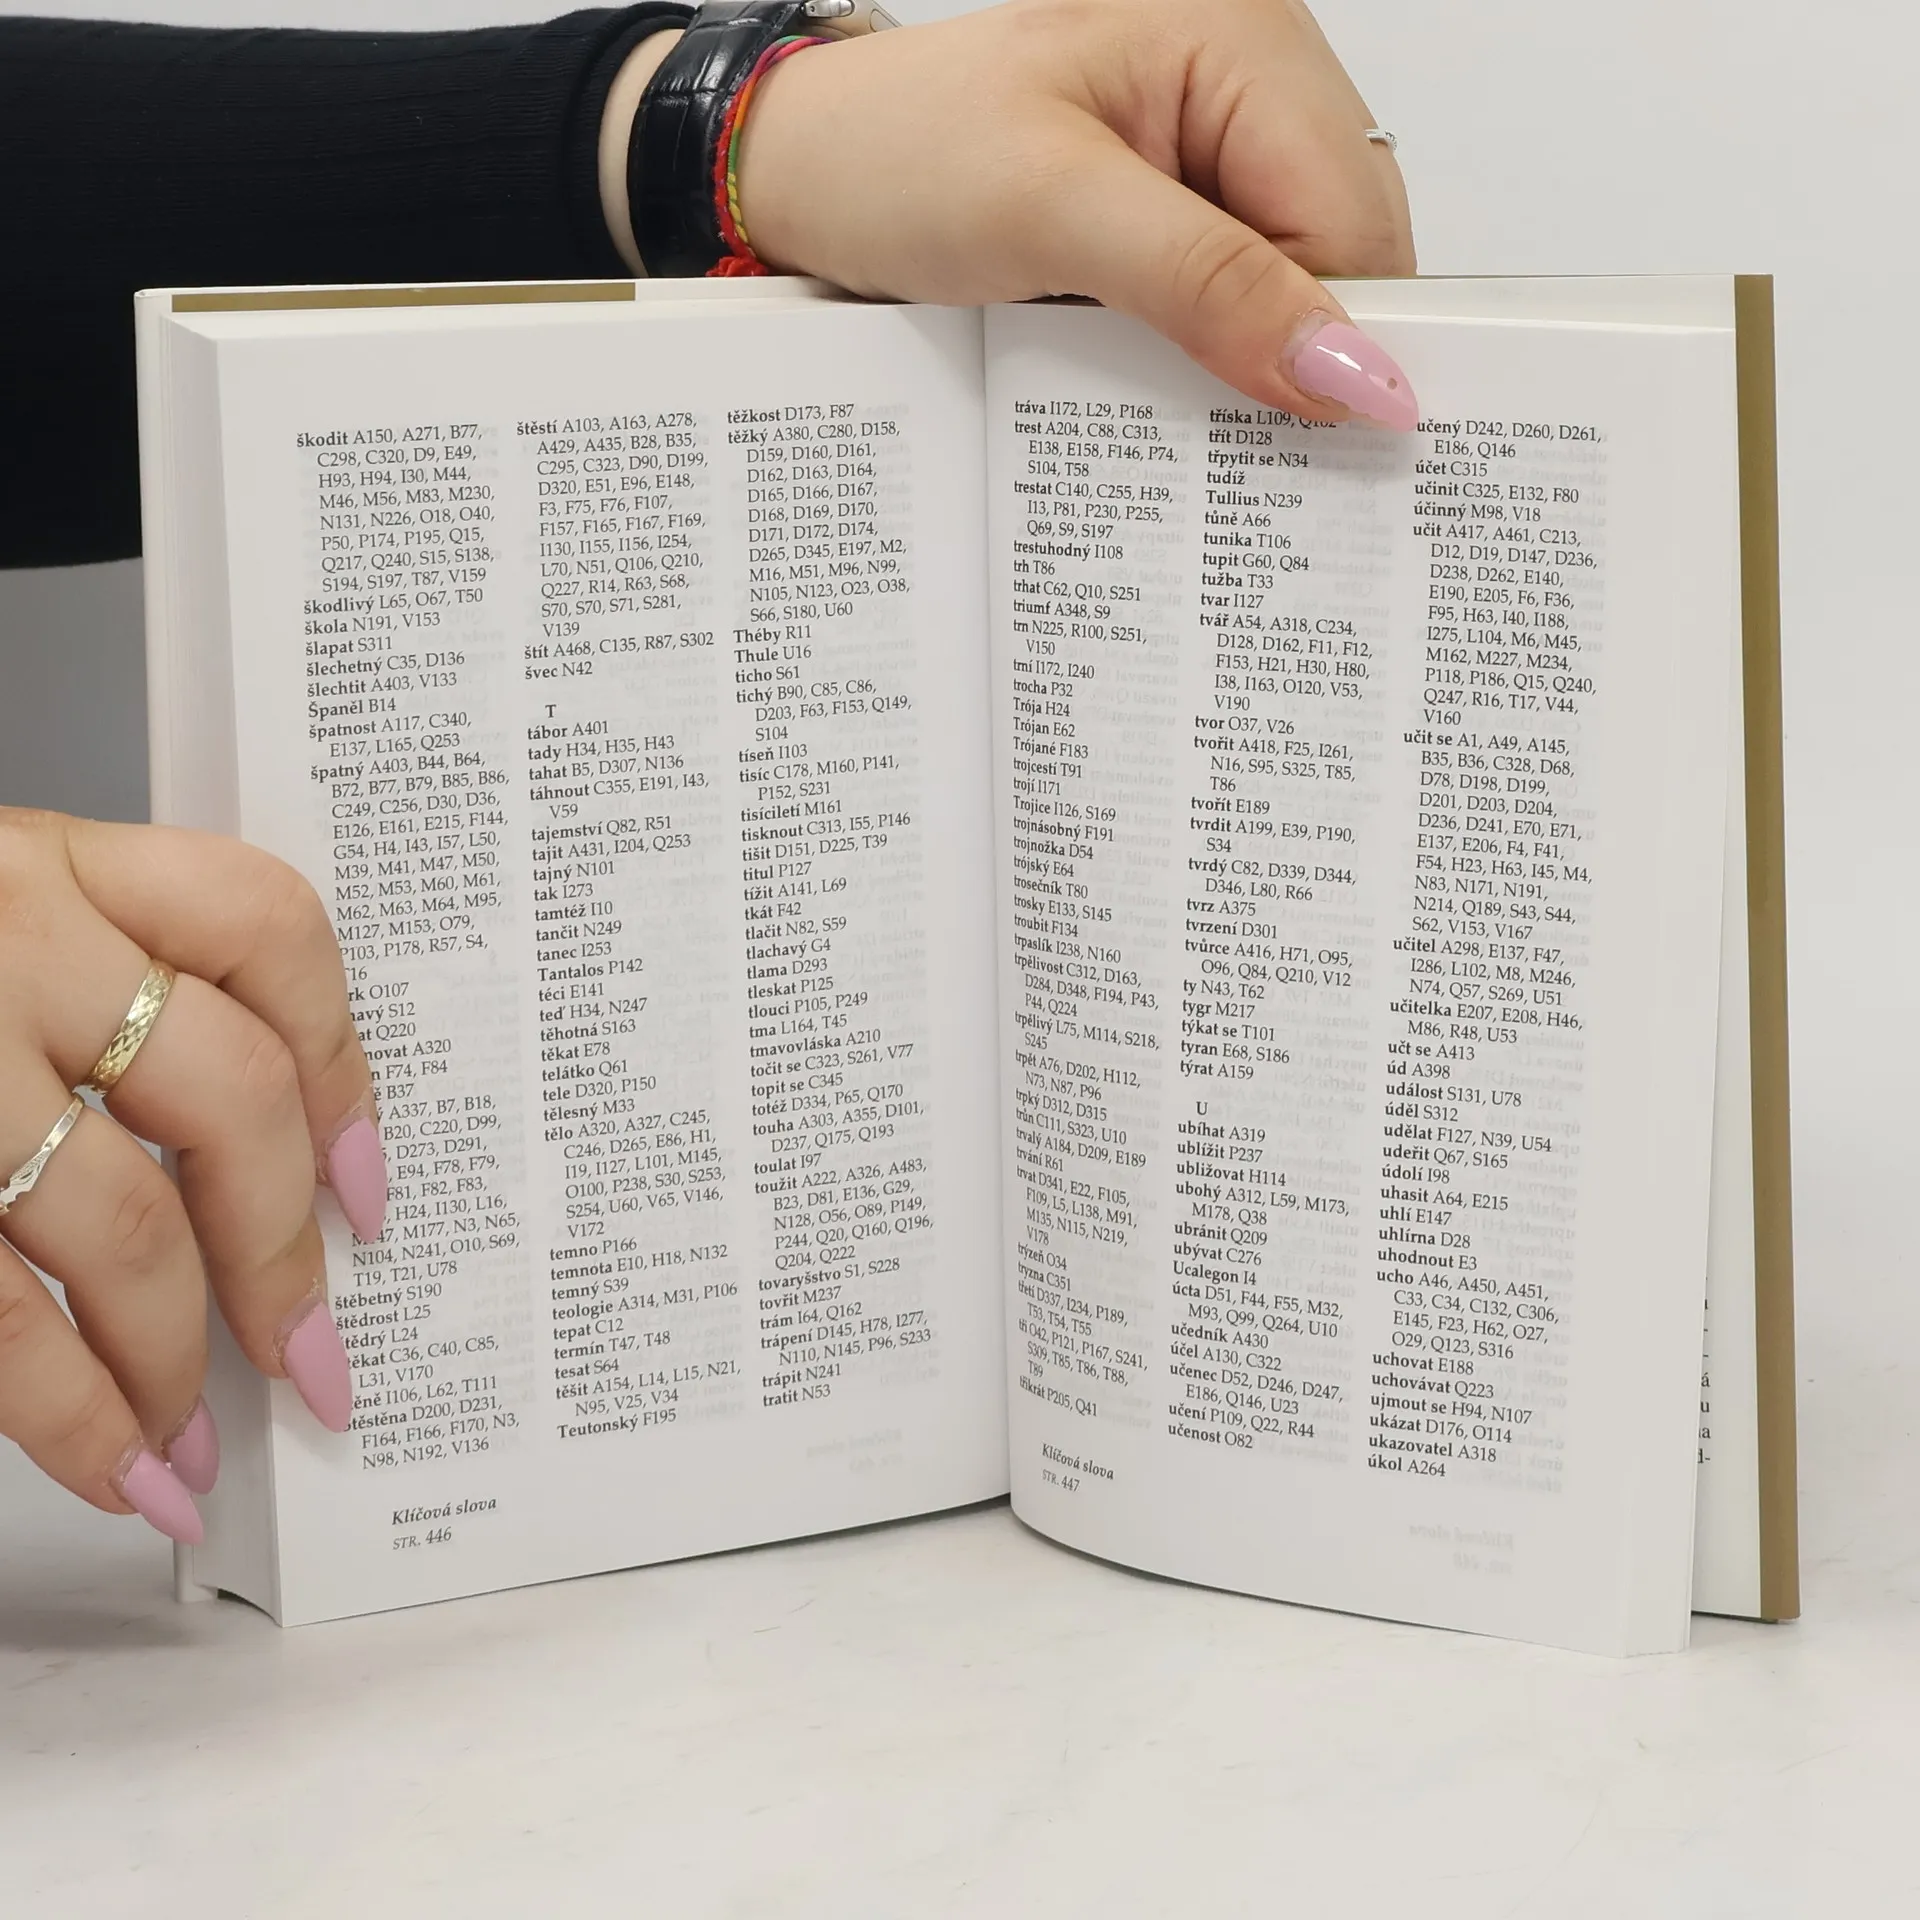 škodit A150, A271, B77,
C298, C320, D9, E49,
H93, H94, I30, M44,
M46, M56, M83, M230,
N131, N226, O18, O40,
P50, P174, P195, Q15,
Q217, Q240, S15, S138,
S194, S197, T87, V159
škodlivý L65, O67, T50
škola N191, V153
šlapat S311
šlechetný C35, D136
šlechtit A403, V133
Španěl B14
špatnost A117, C340,
E137, L165, Q253
špatný A403, B44, B64,
B72, B77, B79, B85, B86,
C249, C256, D30, D36,
E126, E161, E215, F144,
G54, H4, I43, I57, L50,
M39, M41, M47, M50,
M52, M53, M60, M61,
M62, M63, M64, M95,
M127, M153, O79,
P103, P178, R57, S4,
T16
O107
S12
Q220
A320
F74, F84
B37
A337, B7, B18,
B20, C220, D99,
D273, D291,
E94, F78, F79,
F81, F82, F83,
H24, I130, L16,
M177, N3, N65,
N104, N241, O10, S69,
T19, T21, U78
štěbetný S190
štědrost L25
štědrý L24
C36, C40, C85,
L31, V170
I106, L62, T111
štěstěna D200, D231,
F164, F166, F170, N3,
N98, N192, V136
štěstí A103, A163, A278,
A429, A435, B28, B35,
C295, C323, D90, D199,
D320, E51, E96, E148,
F3, F75, F76, F107,
F157, F165, F167, F169,
I130, I155, I156, I254,
L70, N51, Q106, Q210,
Q227, R14, R63, S68,
S70, S70, S71, S281,
V139
štít A468, C135, R87, S302
švec N42
T
tábor A401
tady H34, H35, H43
tahat B5, D307, N136
táhnout C355, E191, I43,
V59
tajemství Q82, R51
tajit A431, I204, Q253
tajný N101
tak I273
tamtéž I10
tančit N249
tanec I253
Tantalos P142
téci E141
teď H34, N247
těhotná S163
těkat E78
telátko Q61
tele D320, P150
tělesný M33
tělo A320, A327, C245,
C246, D265, E86, H1,
I19, I127, L101, M145,
O100, P238, S30, S253,
S254, U60, V65, V146,
V172
temno P166
temnota E10, H18, N132
temný S39
teologie A314, M31, P106
tepat C12
termín T47, T48
tesat S64
těšit A154, L14, L15, N21,
N95, V25, V34
Teutonský F195
těžkost D173, F87
těžký A380, C280, D158,
D159, D160, D161,
D162, D163, D164,
D165, D166, D167,
D168, D169, D170,
D171, D172, D174,
D265, D345, E197, M2,
M16, M51, M96, N99,
N105, N123, O23, O38,
S66, S180, U60
Théby R11
Thule U16
ticho S61
tichý B90, C85, C86,
D203, F63, F153, Q149,
S104
tíseň I103
tisíc C178, M160, P141,
P152, S231
tisíciletí M161
tisknout C313, I55, P146
tišit D151, D225, T39
titul P127
tížit A141, L69
tkát F42
tlačit N82, S59
tlachavý G4
tlama D293
tleskat P125
tlouci P105, P249
tma L164, T45
tmavovláska A210
točit se C323, S261, V77
topit se C345
totéž D334, P65, Q170
touha A303, A355, D101,
D237, Q175, Q193
toulat I97
toužit A222, A326, A483,
B23, D81, E136, G29,
N128, O56, O89, P149,
P244, Q20, Q160, Q196,
Q204, Q222
tovaryšstvo S1, S228
tovřit M237
trám I64, Q162
trápení D145, H78, I277,
N110, N145, P96, S233
trápit N241
tratit N53
Klíčová slova
STR. 446
tráva I172, L29, P168
trest A204, C88, C313,
E138, E158, F146, P74,
S104, T58
trestat C140, C255, H39,
I13, P81, P230, P255,
Q69, S9, S197
trestuhodný I108
trh T86
trhat C62, Q10, S251
triumf A348, S9
trn N225, R100, S251,
V150
trní I172, I240
trocha P32
Trója H24
Trójan E62
Trójané F183
trojcestí T91
trojí I171
Trojice I126, S169
trojnásobný F191
trojnožka D54
trójský E64
trosečník T80
trosky E133, S145
troubit F134
trpaslík I238, N160
trpělivost C312, D163,
D284, D348, F194, P43,
P44, Q224
trpělivý L75, M114, S218,
S245
trpět A76, D202, H112,
N73, N87, P96
trpký D312, D315
trůn C111, S323, U10
trvalý A184, D209, E189
trvání R61
trvat D341, E22, F105,
F109, L5, L138, M91,
M135, N115, N219,
V178
trýzeň O34
tryzna C351
třetí D337, I234, P189,
T53, T54, T55
tři O42, P121, P167, S241,
S309, T85, T86, T88,
T89
třikrát P205, Q41
Klíčová slova
STR. 447
tříska L109, Q162
třít D128
třpytit se N34
tudíž
Tullius N239
tůně A66
tunika T106
tupit G60, Q84
tužba T33
tvar I127
tvář A54, A318, C234,
D128, D162, F11, F12,
F153, H21, H30, H80,
I38, I163, O120, V53,
V190
tvor O37, V26
tvořit A418, F25, I261,
N16, S95, S325, T85,
T86
tvořít E189
tvrdit A199, E39, P190,
S34
tvrdý C82, D339, D344,
D346, L80, R66
tvrz A375
tvrzení D301
tvůrce A416, H71, O95,
O96, Q84, Q210, V12
ty N43, T62
tygr M217
týkat se T101
tyran E68, S186
týrat A159
U
ubíhat A319
ublížit P237
ubližovat H114
ubohý A312, L59, M173,
M178, Q38
ubránit Q209
ubývat C276
Ucalegon I4
úcta D51, F44, F55, M32,
M93, Q99, Q264, U10
učedník A430
účel A130, C322
učenec D52, D246, D247,
E186, Q146, U23
učení P109, Q22, R44
učenost O82
učený D242, D260, D261,
E186, Q146
účet C315
učinit C325, E132, F80
účinný M98, V18
učit A417, A461, C213,
D12, D19, D147, D236,
D238, D262, E140,
E190, E205, F6, F36,
F95, H63, I40, I188,
I275, L104, M6, M45,
M162, M227, M234,
P118, P186, Q15, Q240,
Q247, R16, T17, V44,
V160
učit se A1, A49, A145,
B35, B36, C328, D68,
D78, D198, D199,
D201, D203, D204,
D236, D241, E70, E71,
E137, E206, F4, F41,
F54, H23, H63, I45, M4,
N83, N171, N191,
N214, Q189, S43, S44,
S62, V153, V167
učitel A298, E137, F47,
I286, L102, M8, M246,
N74, Q57, S269, U51
učitelka E207, E208, H46,
M86, R48, U53
učt se A413
úd A398
událost S131, U78
úděl S312
udělat F127, N39, U54
udeřit Q67, S165
údolí I98
uhasit A64, E215
uhlí E147
uhlírna D28
uhodnout E3
ucho A46, A450, A451,
C33, C34, C132, C306,
E145, F23, H62, O27,
O29, Q123, S316
uchovat E188
uchovávat Q223
ujmout se H94, N107
ukázat D176, O114
ukazovatel A318
úkol A264